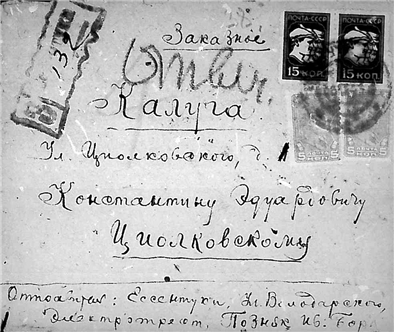 Заказное
ПОЧТА СССР
ПОЧТА СССР
15 КОП.
15 КОП.
132
Отвеч.
Калуга
5 КОП
5 КОП
Ул. Циолковского, д. 1
Константину Эдуардовичу
Циолковскому
Ессентуки, Ул. Володарского,
Электротрест, Позняк Ив.